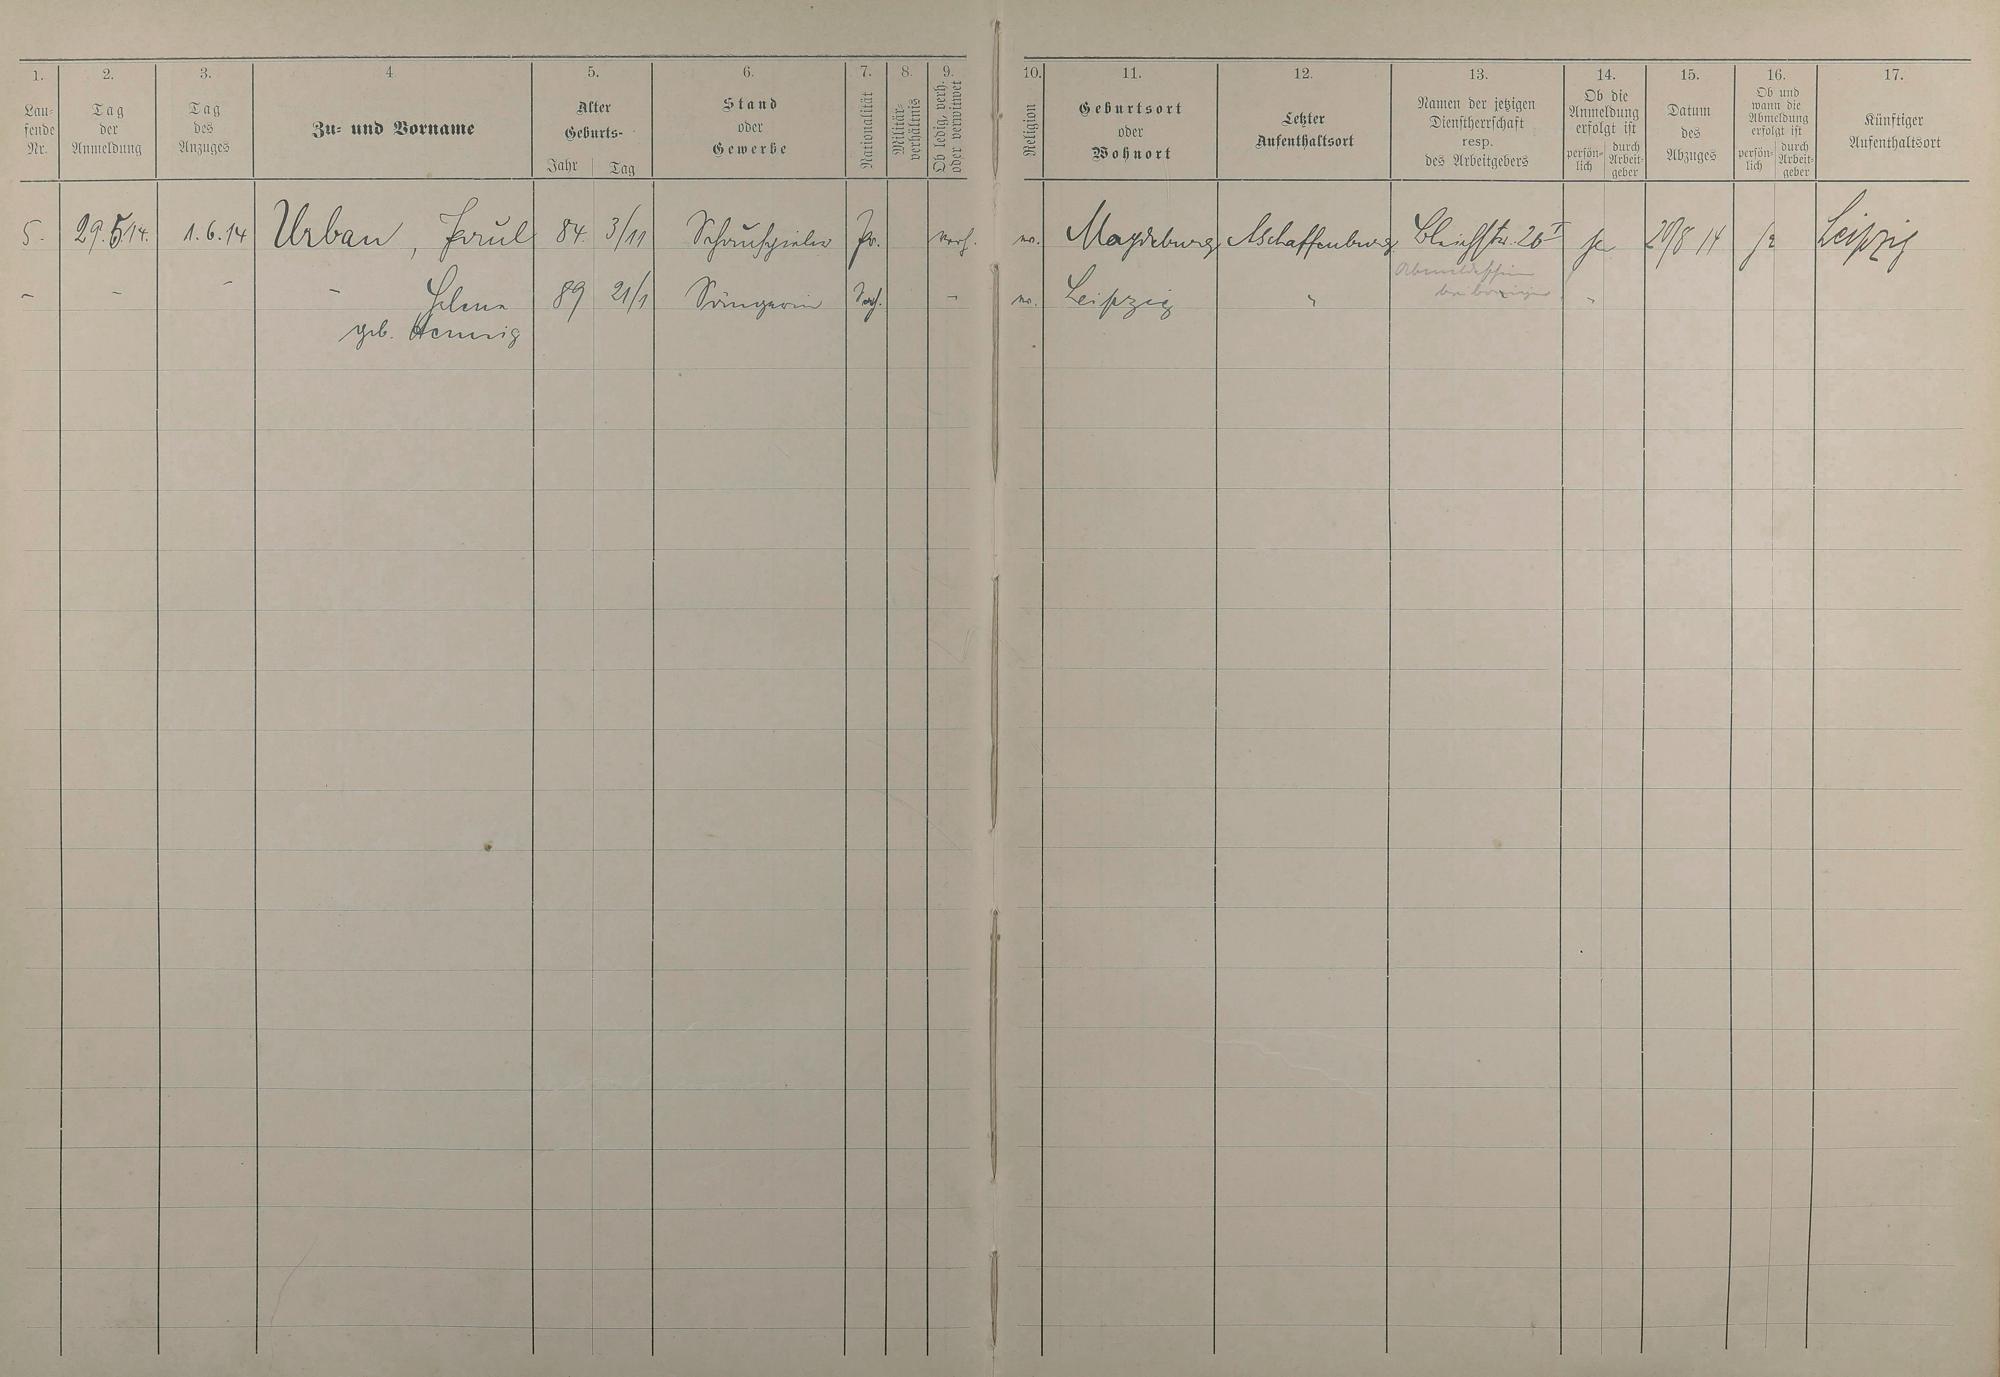 1. 2. 3. 4 5. 6. 7. 8. 9. 10. 11. 12. 13. 14. 15. 16. 17.
Lau-
fende
Nr.
Tag
der
Anmeldung
Tag
des
Anzuges
Zu- und Vorname
Alter
Geburts-
Jahr Tag
Stand
oder
Gewerbe
Nationalität
Militär-
verhältnis
Ob ledig, verh.
oder verwitwet
Religion
Geburtsort
oder
Wohnort
Letzter
Aufenthaltsort
Namen der jetzigen
Dienstherrschaft
resp.
des Arbeitgebers
Ob die
Anmeldung
erfolgt ist
persön-
lich
durch
Arbeit-
geber
Datum
des
Abzuges
Ob und
wann die
Abmeldung
erfolgt ist
persön-
lich
durch
Arbeit-
geber
Künftiger
Aufenthaltsort
5. 29.5.14. 1.6.14 Urban, Paul 84. 3/11 Schauspieler Pr. verh. ev. Magdeburg Aschaffenburg Bleichstr. 26 I ja 20/8 14 ja Leipzig
Abmeldeschein
beibringen
– – – – Helene 89 21/1 Sängerin – ev. Leipzig " "
geb. Hennig